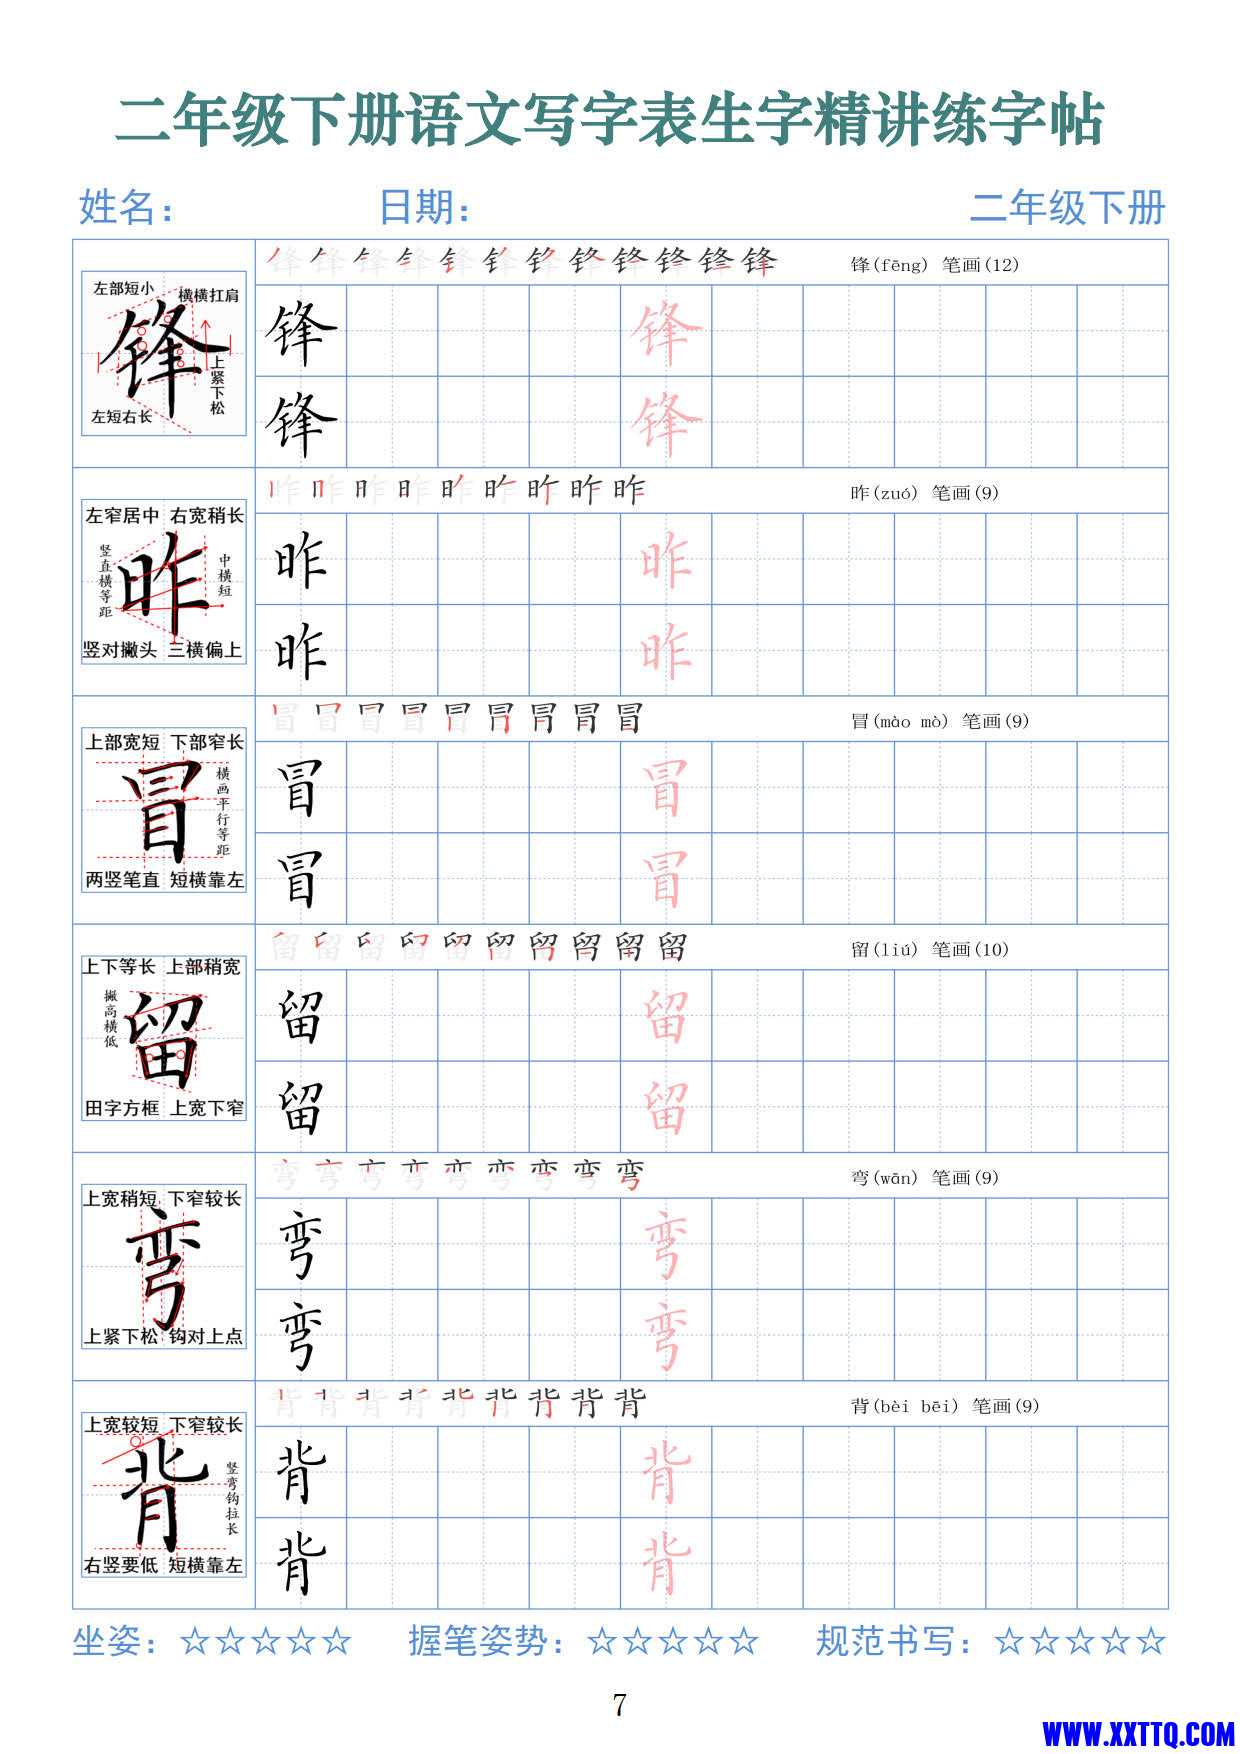 二年级下册语文写字表生字精讲练字帖
姓名： 日期： 二年级下册
锋 锋 锋 锋 锋 锋 锋 锋 锋 锋 锋 锋 锋(fēng) 笔画(12)
左部短小 横横扛肩
锋
上紧下松
左短右长
锋 锋
锋 锋
昨 昨 昨 昨 昨 昨 昨 昨 昨 昨(zuó) 笔画(9)
左窄居中 右宽稍长
竖直横等距 昨 中横短
竖对撇头 三横偏上
昨 昨
昨 昨
冒 冒 冒 冒 冒 冒 冒 冒 冒 冒(mào mò) 笔画(9)
上部宽短 下部窄长
冒 横画平行等距
两竖笔直 短横靠左
冒 冒
冒 冒
留 留 留 留 留 留 留 留 留 留 留(liú) 笔画(10)
上下等长 上部稍宽
撇高横低 留
田字方框 上宽下窄
留 留
留 留
弯 弯 弯 弯 弯 弯 弯 弯 弯 弯(wān) 笔画(9)
上宽稍短 下窄较长
弯
上紧下松 钩对上点
弯 弯
弯 弯
背 背 背 背 背 背 背 背 背 背(bèi bēi) 笔画(9)
上宽较短 下窄较长
背 竖弯钩拉长
右竖要低 短横靠左
背 背
背 背
坐姿：☆☆☆☆☆ 握笔姿势：☆☆☆☆☆ 规范书写：☆☆☆☆☆
7
WWW.XXTTQ.COM